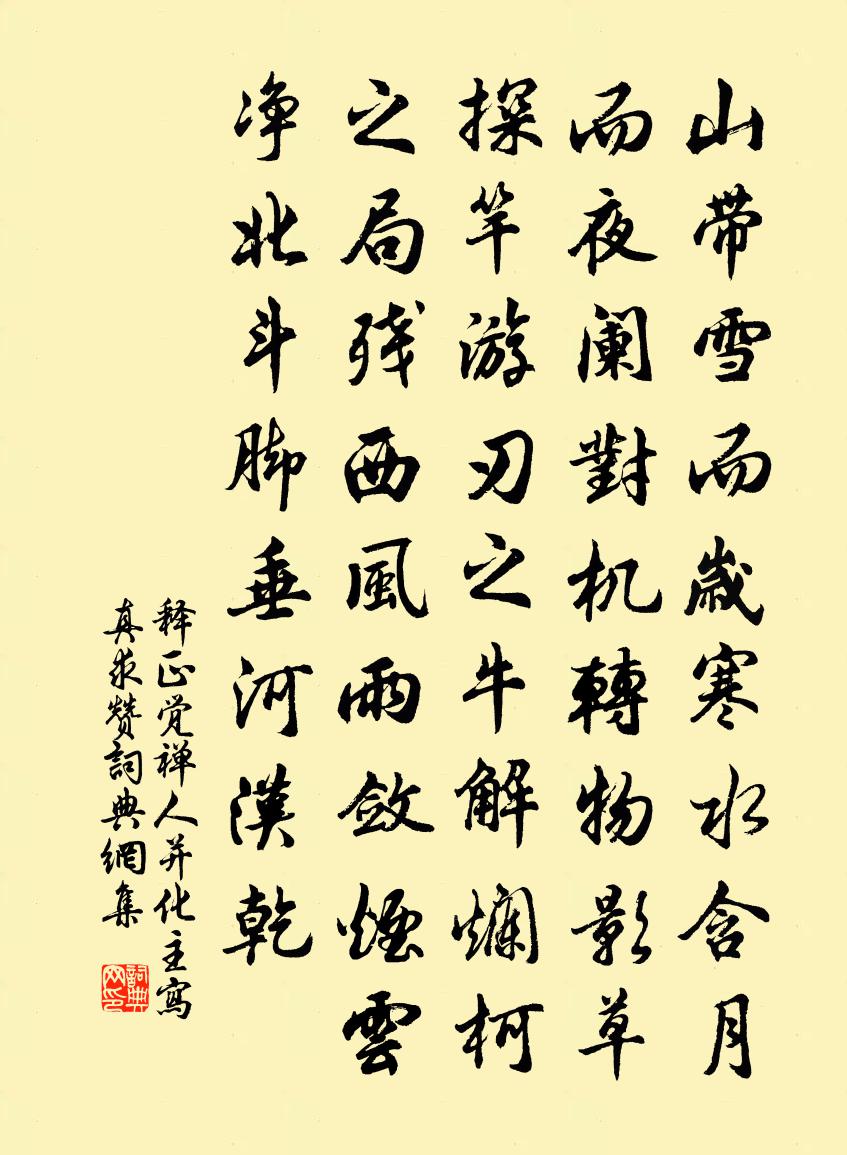 山带雪而歲寒水含月
而夜阑對机轉物影草
探竿游刃之牛解爛柯
之局残西風雨斂煙雲
净北斗脚垂河漢乾
释正觉禅人并化主寫
真求赞詞典網集
詞典网印